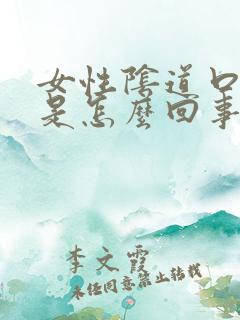 女性陰道口
是怎麼回事
李文霞
未任同意禁止转载